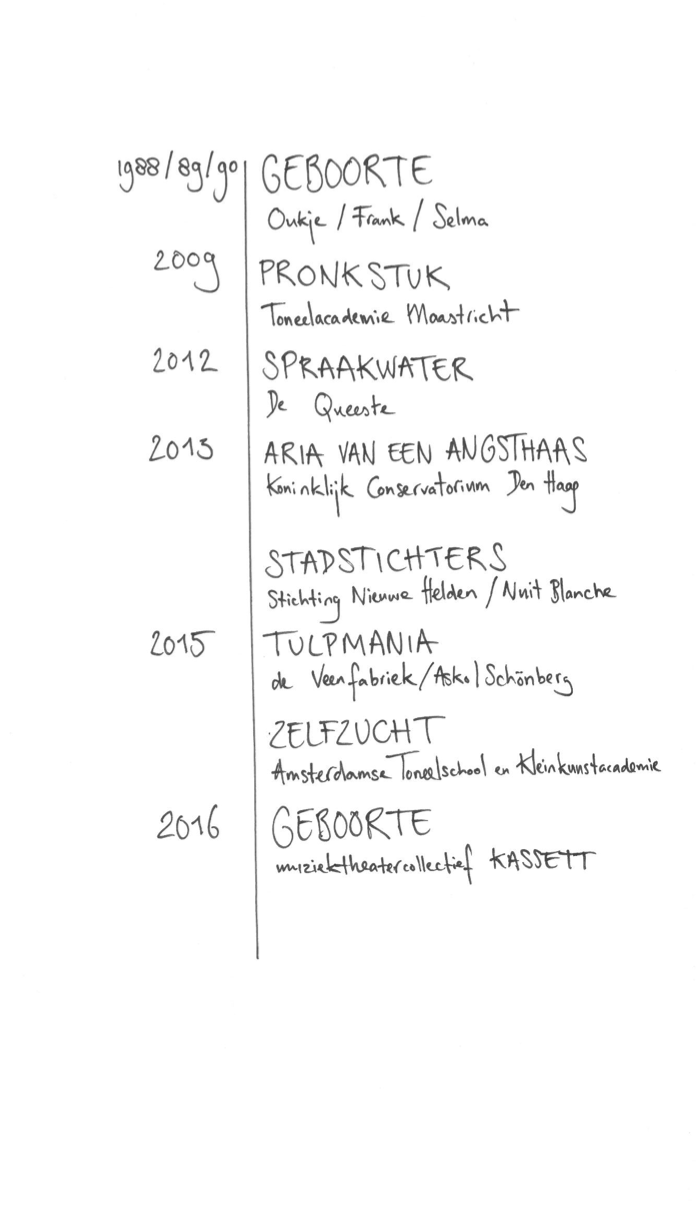 1988/89/90 GEBOORTE
Oukje / Frank / Selma
2009 PRONKSTUK
Toneelacademie Maastricht
2012 SPRAAKWATER
De Queeste
2013 ARIA VAN EEN ANGSTHAAS
Koninklijk Conservatorium Den Haag
STADSTICHTERS
Stichting Nieuwe Helden / Nuit Blanche
2015 TULPMANIA
de Veenfabriek/Asko|Schönberg
ZELFZUCHT
Amsterdamse Toneelschool en Kleinkunstacademie
2016 GEBOORTE
muziektheatercollectief KASSETT